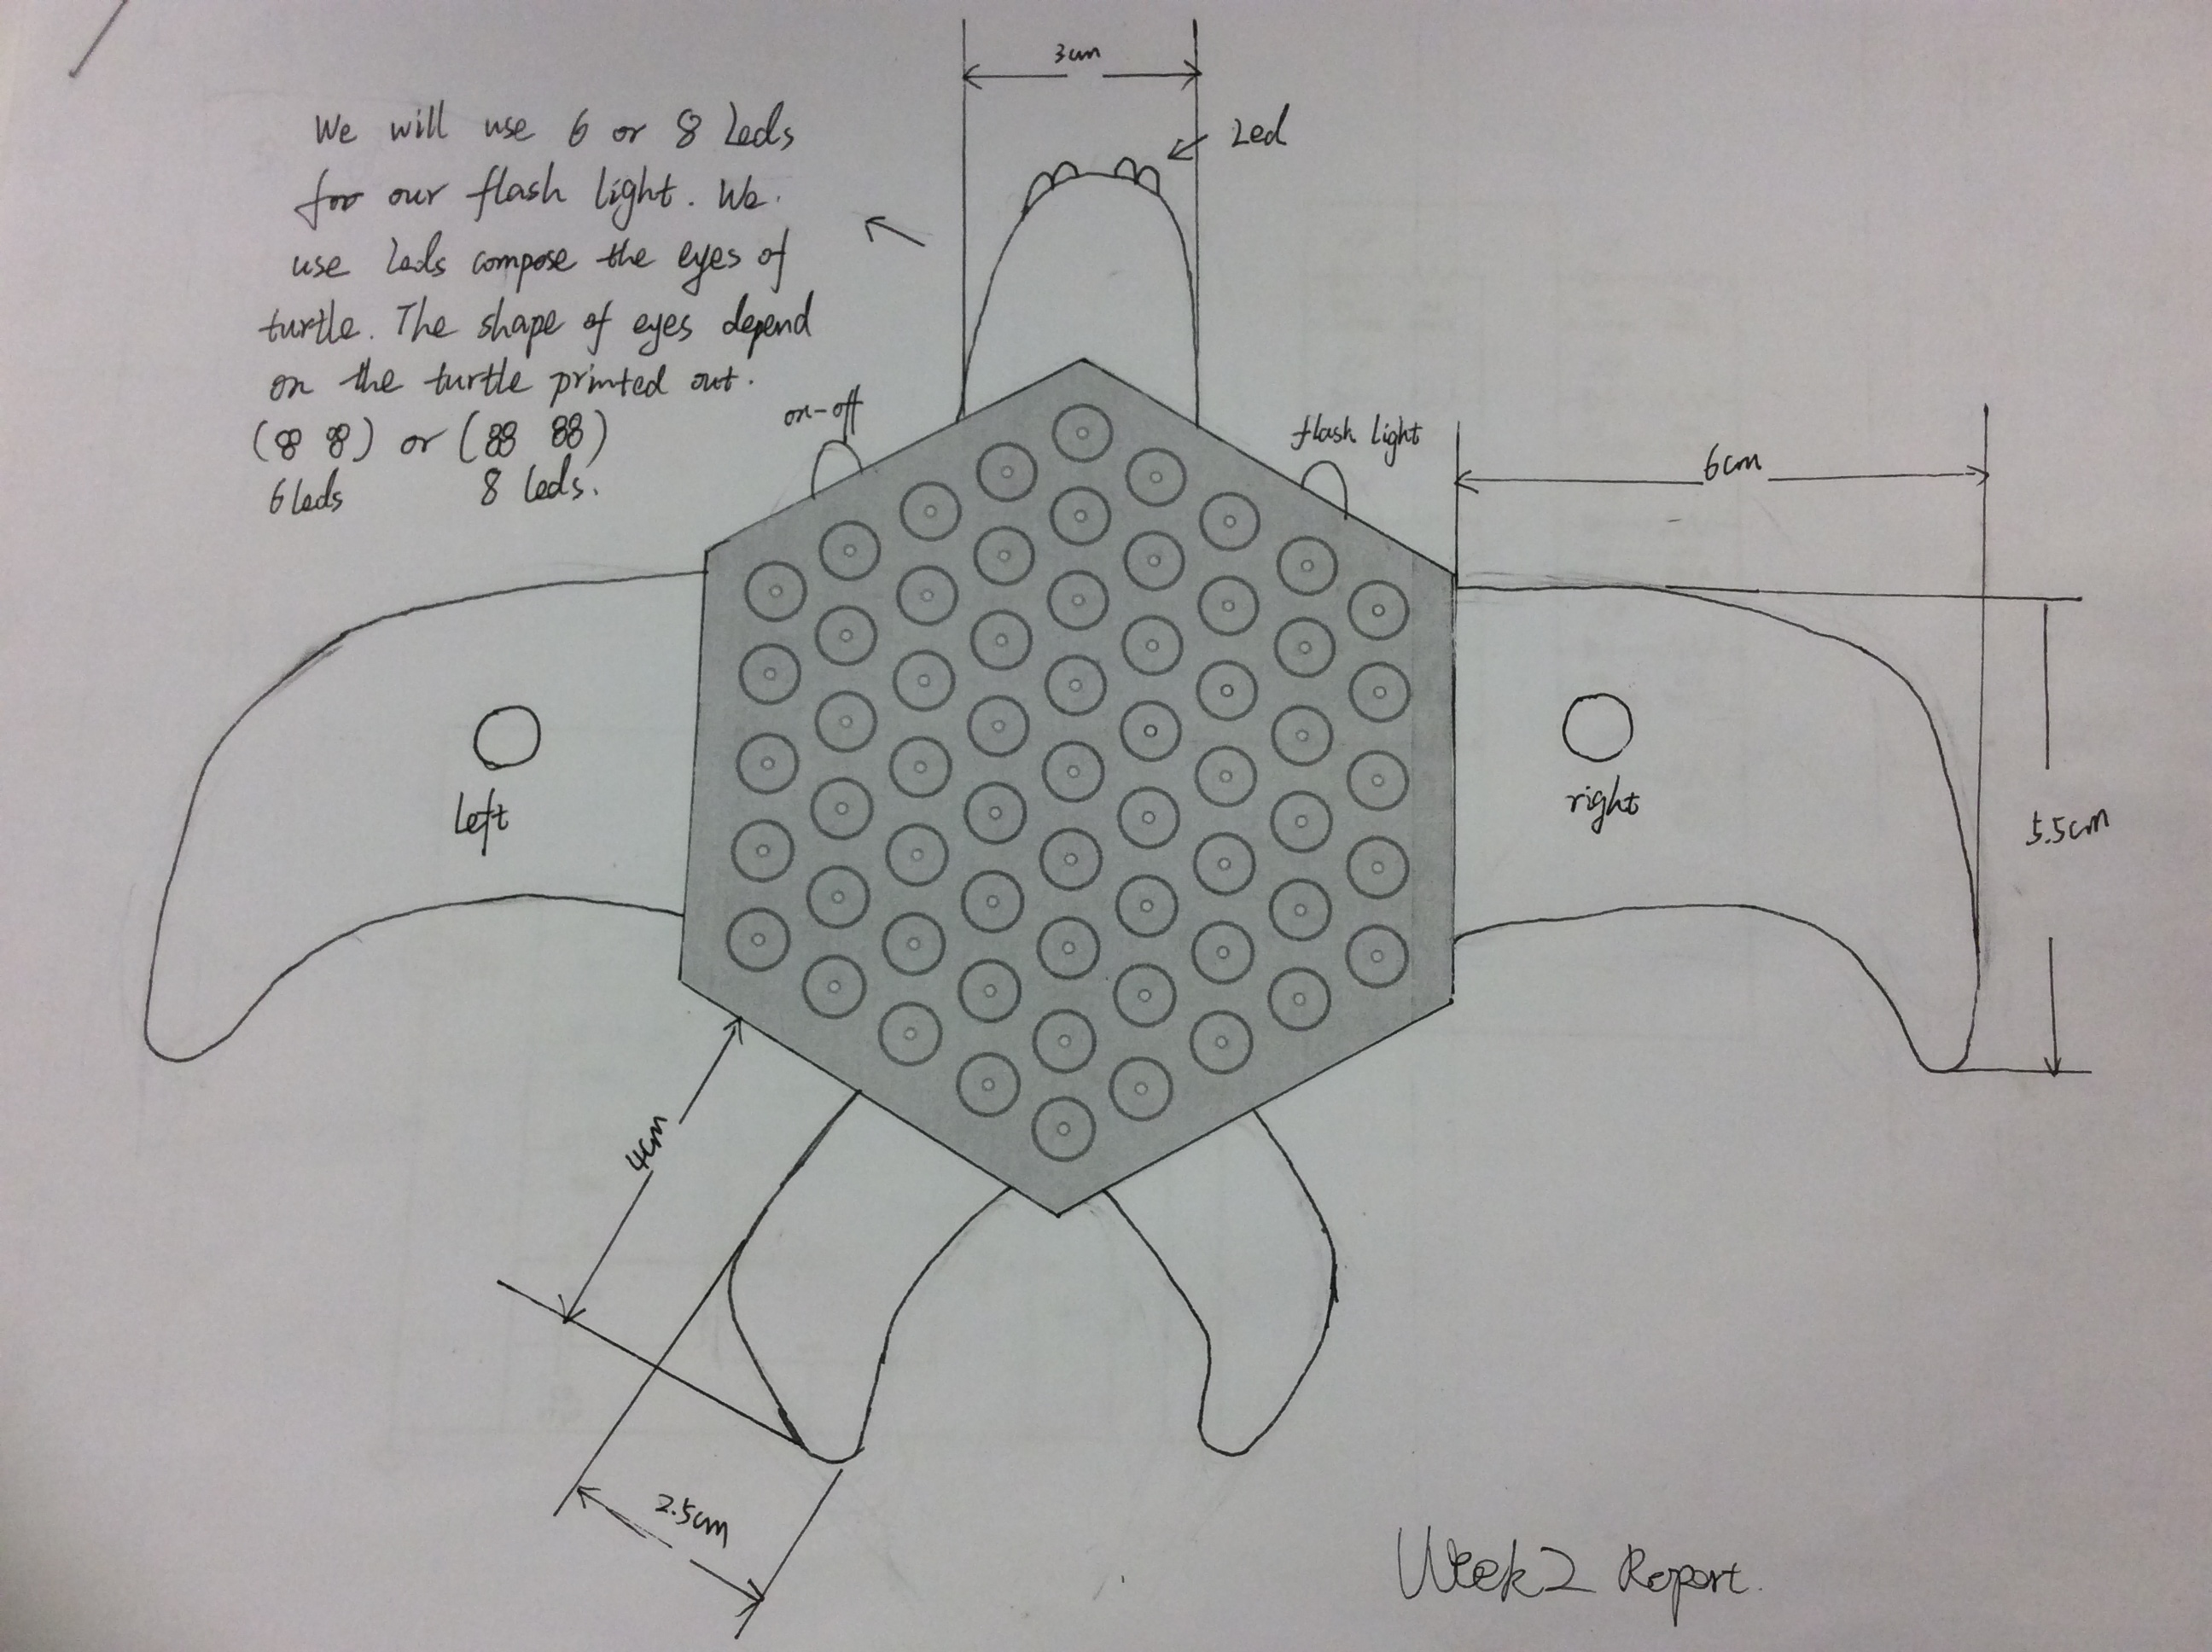 3cm
Led
We will use 6 or 8 Leds
for our flash light. We.
use Leds compose the eyes of
turtle. The shape of eyes depend
on the turtle printed out.
(88 88) or (88 88)
6 leds 8 leds.
on-off
flash light
6cm
left
right
5.5cm
4cm
2.5cm
Week2 Report.